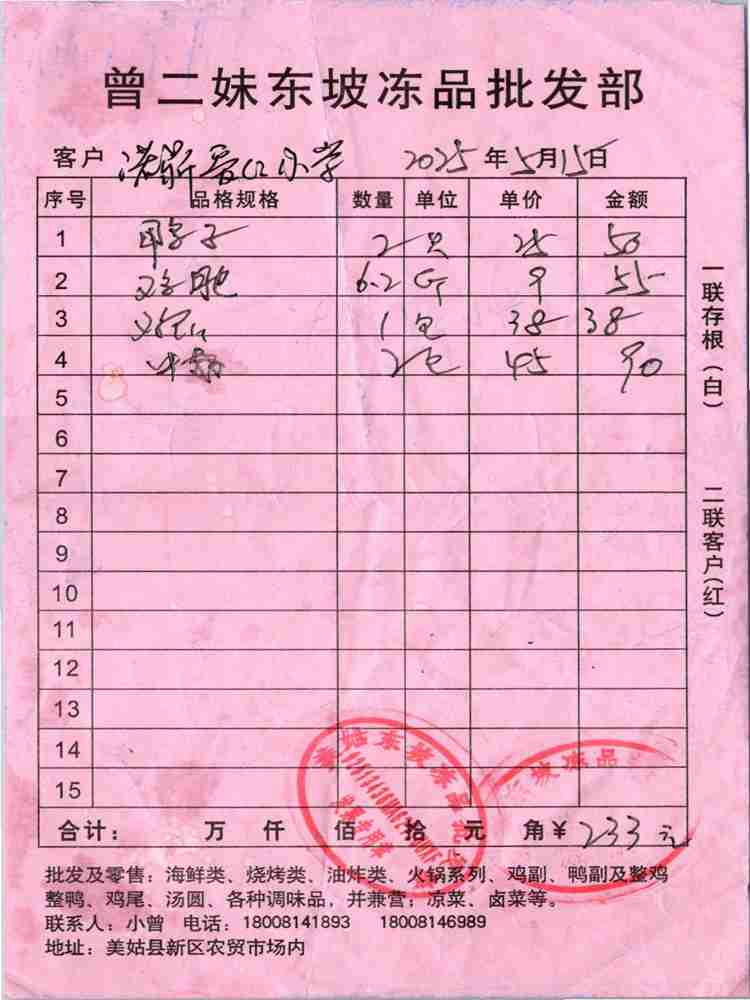 曾二妹东坡冻品批发部
客户 小学 2025年5月15日
序号 品格规格 数量 单位 单价 金额
1 鸭子 2 只 25 50
2 6.2 9 55
3 1 包 38 38
4 2 包 45 90
5
6
7
8
9
10
11
12
13
14
15
合计： 万 仟 佰 拾 元 角￥233元
批发及零售：海鲜类、烧烤类、油炸类、火锅系列、鸡副、鸭副及整鸡
整鸭、鸡尾、汤圆、各种调味品，并兼营：凉菜、卤菜等。
联系人：小曾 电话：18008141893 18008146989
地址：美姑县新区农贸市场内
一联存根（白）
二联客户（红）